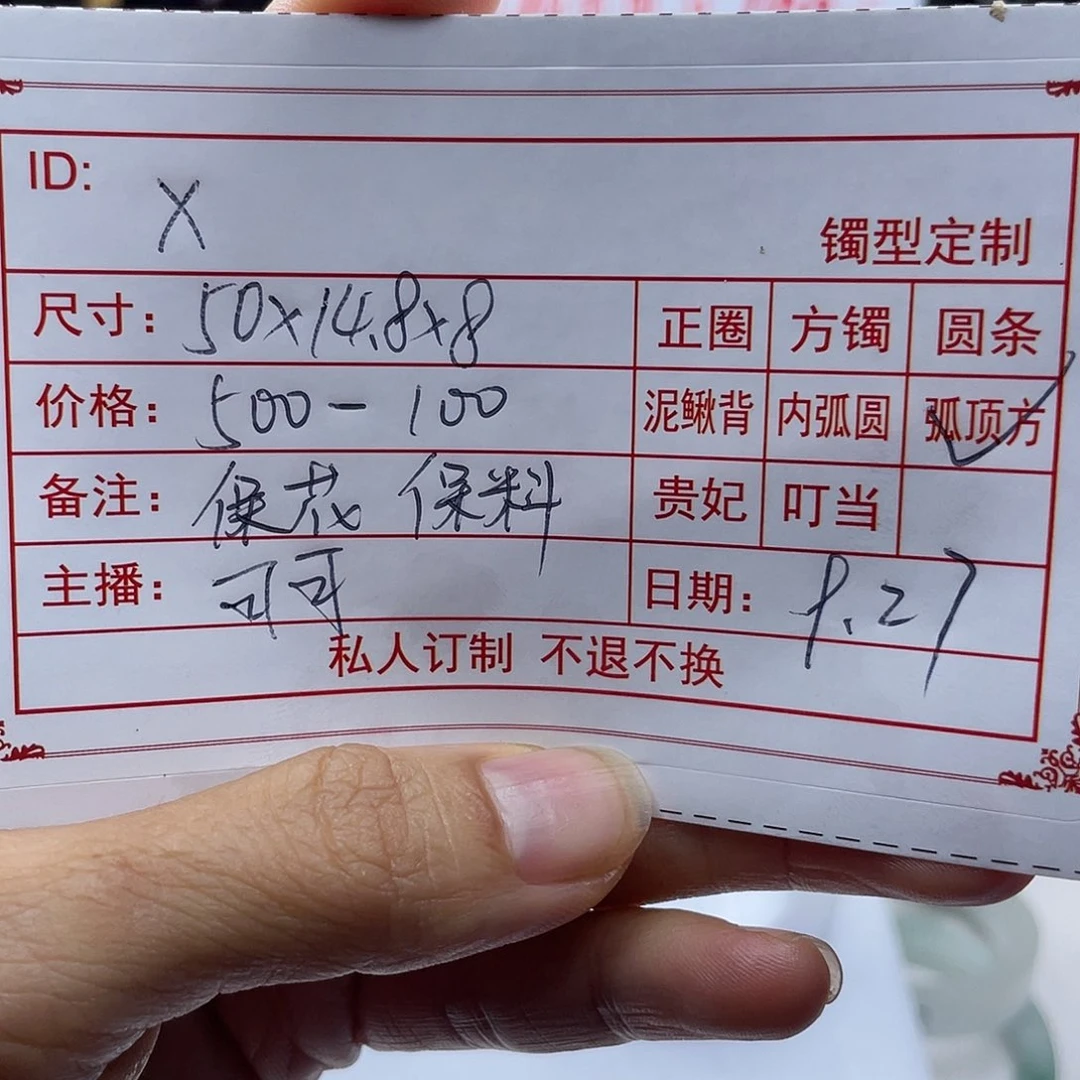 ID: X
镯型定制
尺寸: 50x14.8x8 正圈 方镯 圆条
价格: 500-100 泥鳅背 内弧圆 弧顶方
备注: 保花 保料 贵妃 叮当
主播: 可可 日期: 9.27
私人订制 不退不换